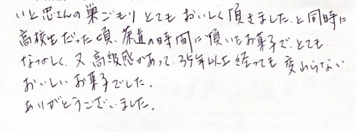 いと忠さんの巣ごもりとてもおいしく頂きました。と同時に
高校生だった頃、茶道の時間に頂いたお菓子で、とても
なつかしく、又高級感があって、35年以上経っても変わらない
おいしいお菓子でした。
ありがとうございました。